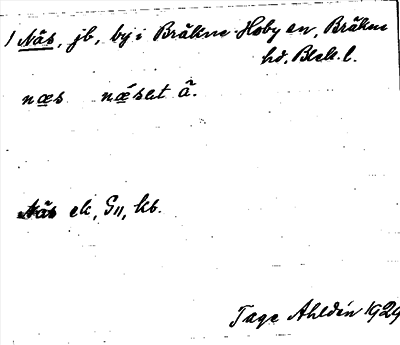 1 Näs, jb, by i Bräkne-Hoby sn, Bräkne
hd, Blek. l.
næs næ´set ã.
Näs ek, G11, kb.
Tage Ahldén 1929